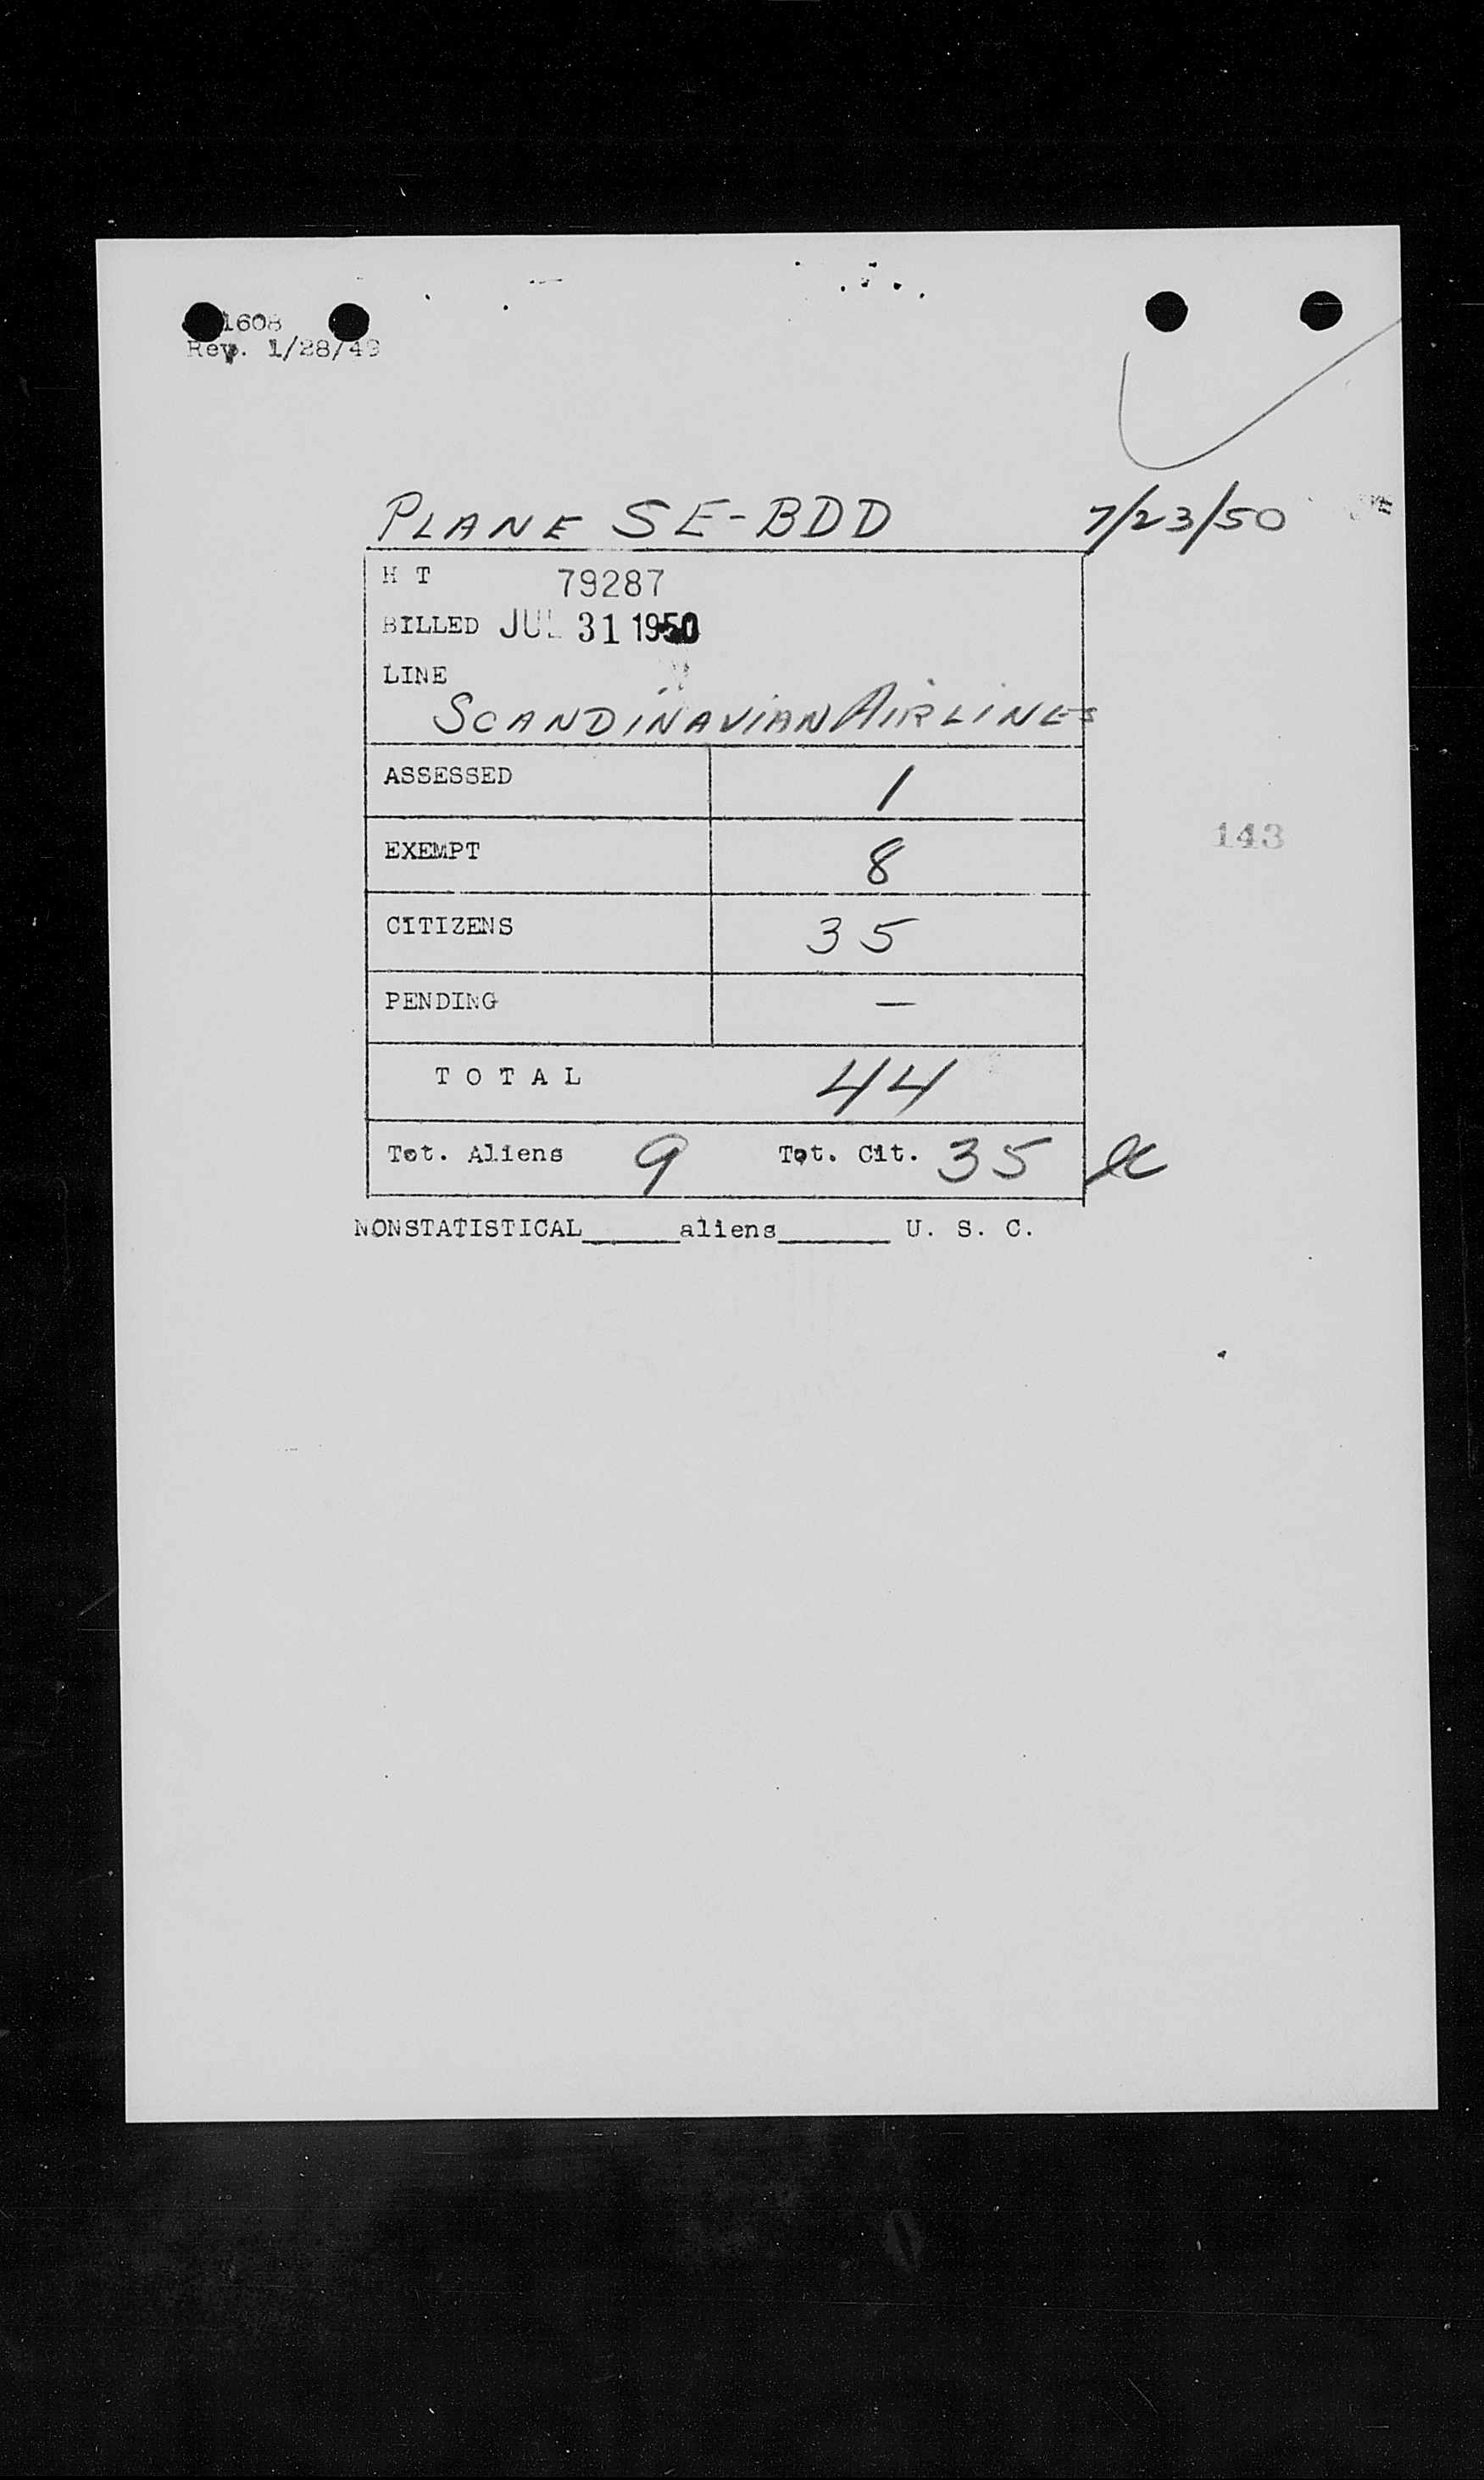 1608
Rev. 1/28/49
PLANE SE-BDD 7/23/50
H T 79287
BILLED JUL 31 1950
LINE
SCANDINAVIAN AIRLINES
ASSESSED 1
EXEMPT 8
143
CITIZENS 35
PENDING —
TOTAL 44
Tot. Aliens 9 Tot. Cit. 35
NONSTATISTICAL_____aliens______ U. S. C.